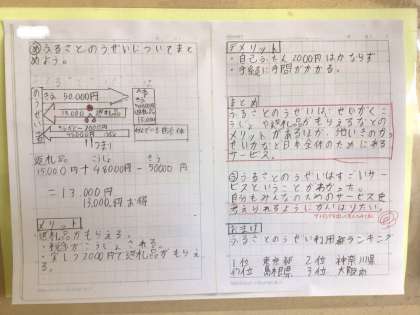 め ふるさとのうぜいについてまとめよう。
きふ 50,000円
15,000円 返礼品
返礼品 こうじょ きふ
15,000円 + 48000円 - 50000円
= 13,000円
13,000円お得
メリット
・返礼品がもらえる。
・税金がこうじょされる。
・実しつ2000円で返礼品がもらえる。
デメリット
・自己ふたん2000円はかならず
・手続に手間がかかる。
まとめ
ふるさとのうぜいは、ぜいがくこうじょや返礼品がもらえるなどのメリットがあるほか、地いきのかっせいかなど日本全体のためにあるサービス。
ふるさとのうぜいはすごいサービスということがわかった。
自分もみんなのためのサービスを考えられるようにがんばりたい。
おまけ
ふるさとのうぜい利用額ランキング
1位 東京都 2位 神奈川県
47位 島根県 3位 大阪府